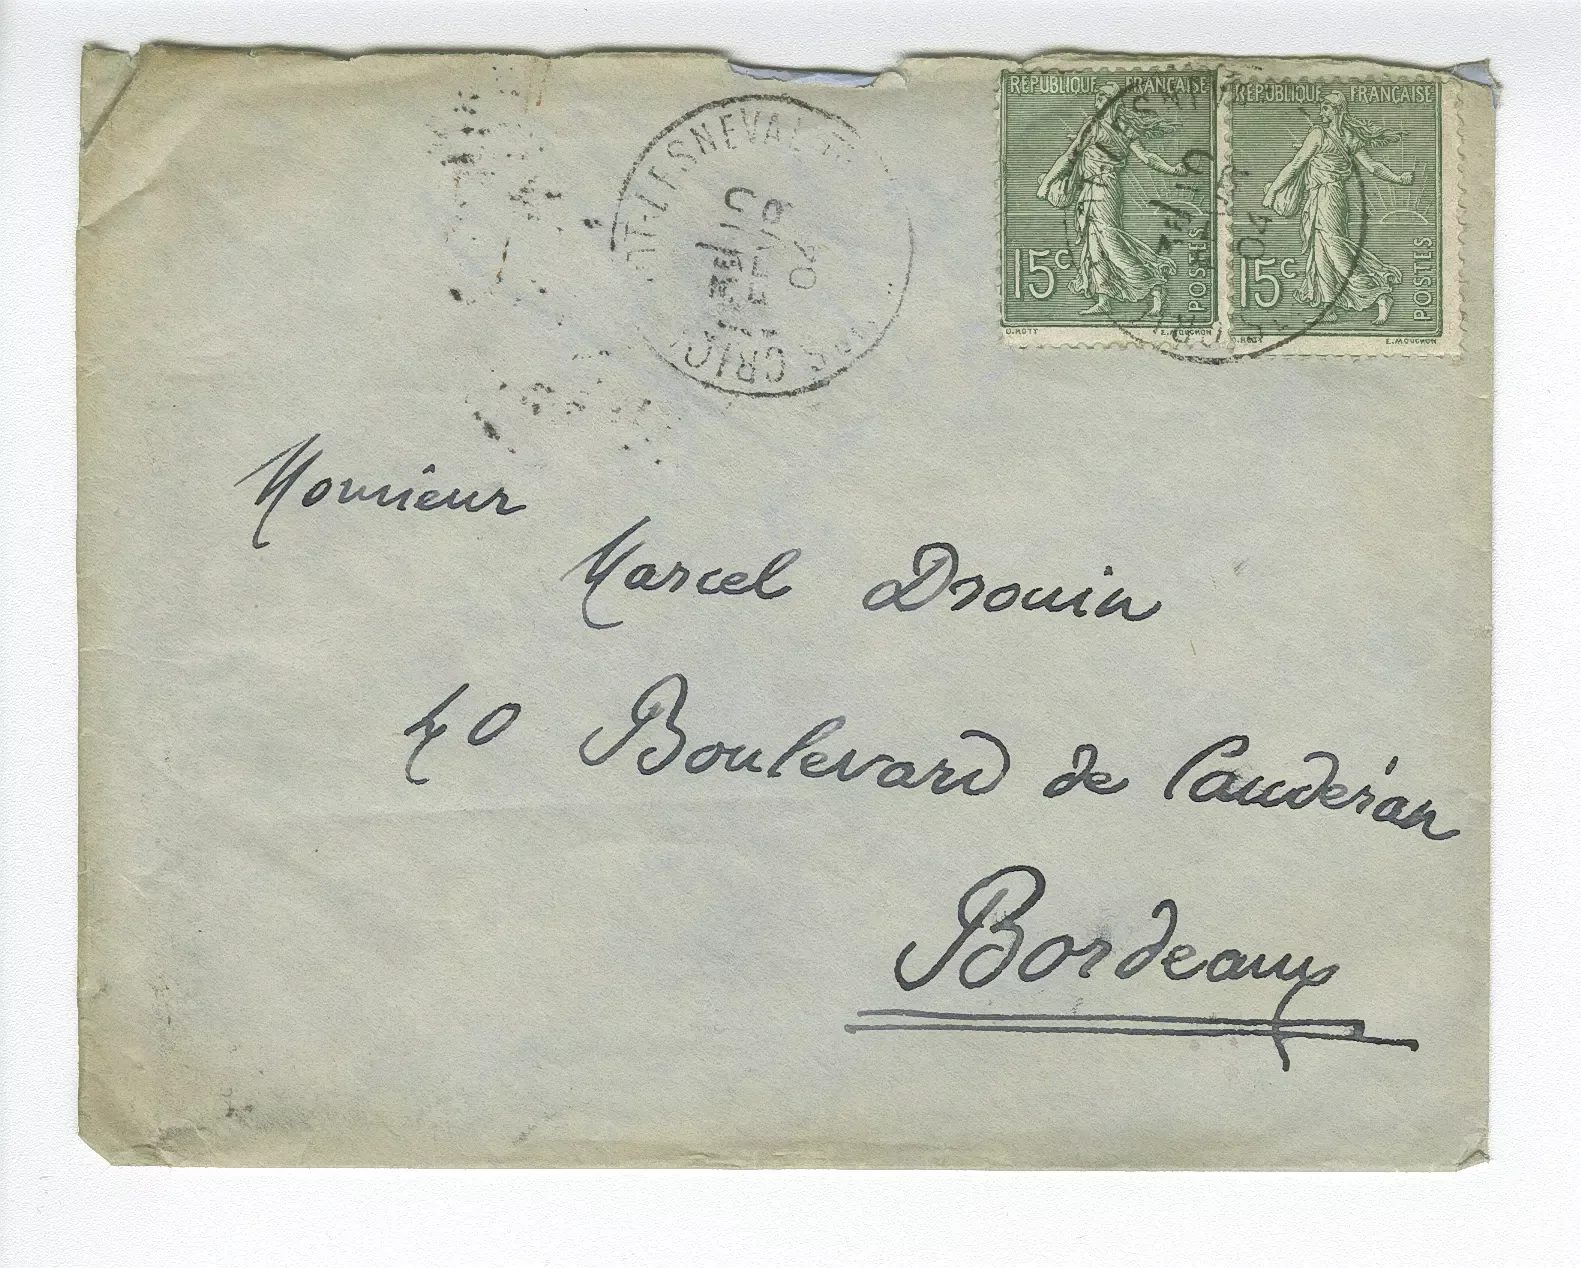 RÉPUBLIQUE FRANÇAISE
15c
POSTES
O. ROTY E. MOUCHON
RÉPUBLIQUE FRANÇAISE
15c
POSTES
O. ROTY E. MOUCHON
CRIQ
04
04
Monsieur
Marcel Drouin
40 Boulevard de Caudéran
Bordeaux